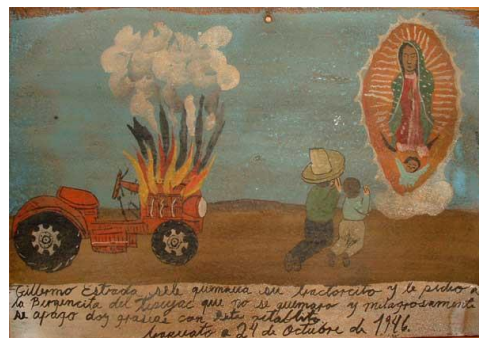 Gillermo Estrada sele quemaua su tractorcito y le pidio a
la Birgencita del Tepeyac que no se quemara y milagrosamente
se apago doy grasias con este retablito
Irapuato a 24 de Octubre de 1946.